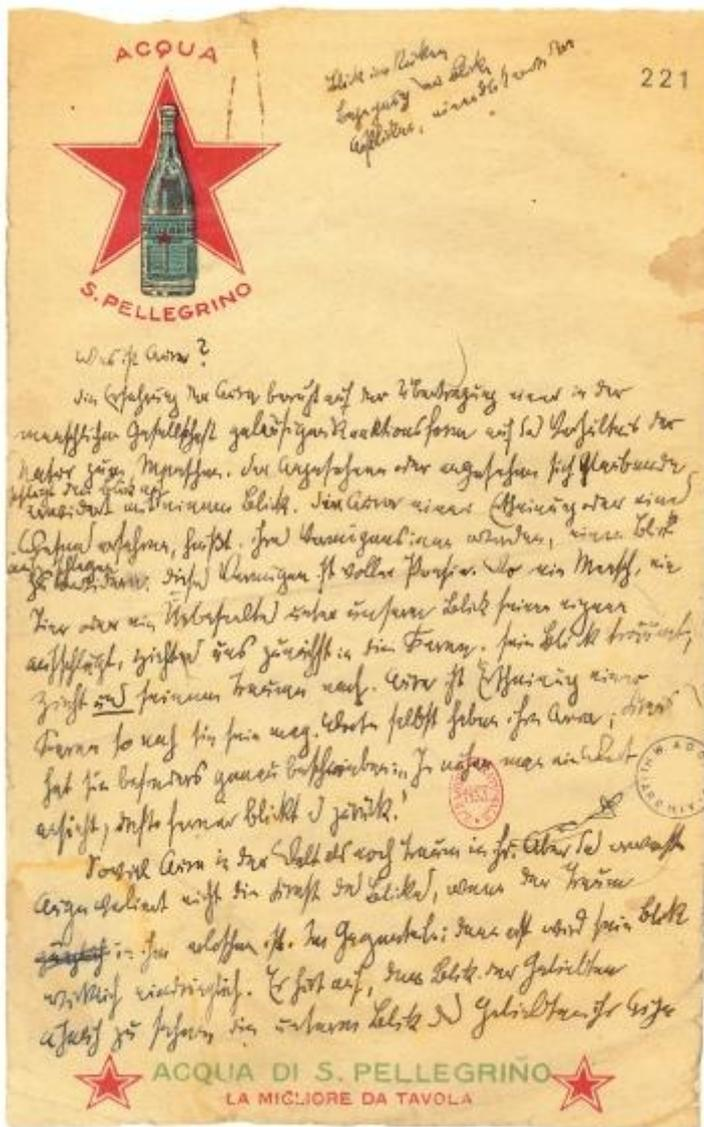 ACQUA
S. PELLEGRINO
221
Blick im Rücken
Begegnung der Blicke
Was ist Aura?
Die Erfahrung der Aura beruht auf der Übertragung einer in der
menschlichen Gesellschaft geläufigen Reaktionsform auf das Verhältnis der
Natur zum Menschen. Der Angesehene oder angesehen sich Glaubende
schlägt den Blick auf
erwidert mit einem Blick. Die Aura einer Erscheinung oder eines
Wesens erfahren, heißt, ihres Vermögens inne werden, einen Blick
aufzuschlagen
zu erwidern. Dieses Vermögen ist voller Poesie. Wo ein Mensch, ein
Tier oder ein Unbeseeltes unter unserm Blick seinen eignen
aufschlägt, zieht es uns zunächst in die Ferne. Sein Blick träumt,
zieht uns seinem Traume nach. Aura ist Erscheinung einer
Ferne so nah sie sein mag. Worte selbst haben ihre Aura; Kraus
hat sie besonders genau beschrieben: „Je näher man ein Wort
ansieht, desto ferner blickt es zurück.“
Soviel Aura in der Welt als noch Traum in ihr. Aber das erwachte
Auge verlernt nicht die Kraft des Blicks, wenn der Traum
in ihm erloschen ist. Im Gegenteil: dann erst wird sein Blick
wirklich eindringlich. Er hört auf, dem Blick der Geliebten
ähnlich zu sehen, die unterm Blick des Geliebten ihr Auge
ACQUA DI S. PELLEGRINO
LA MIGLIORE DA TAVOLA